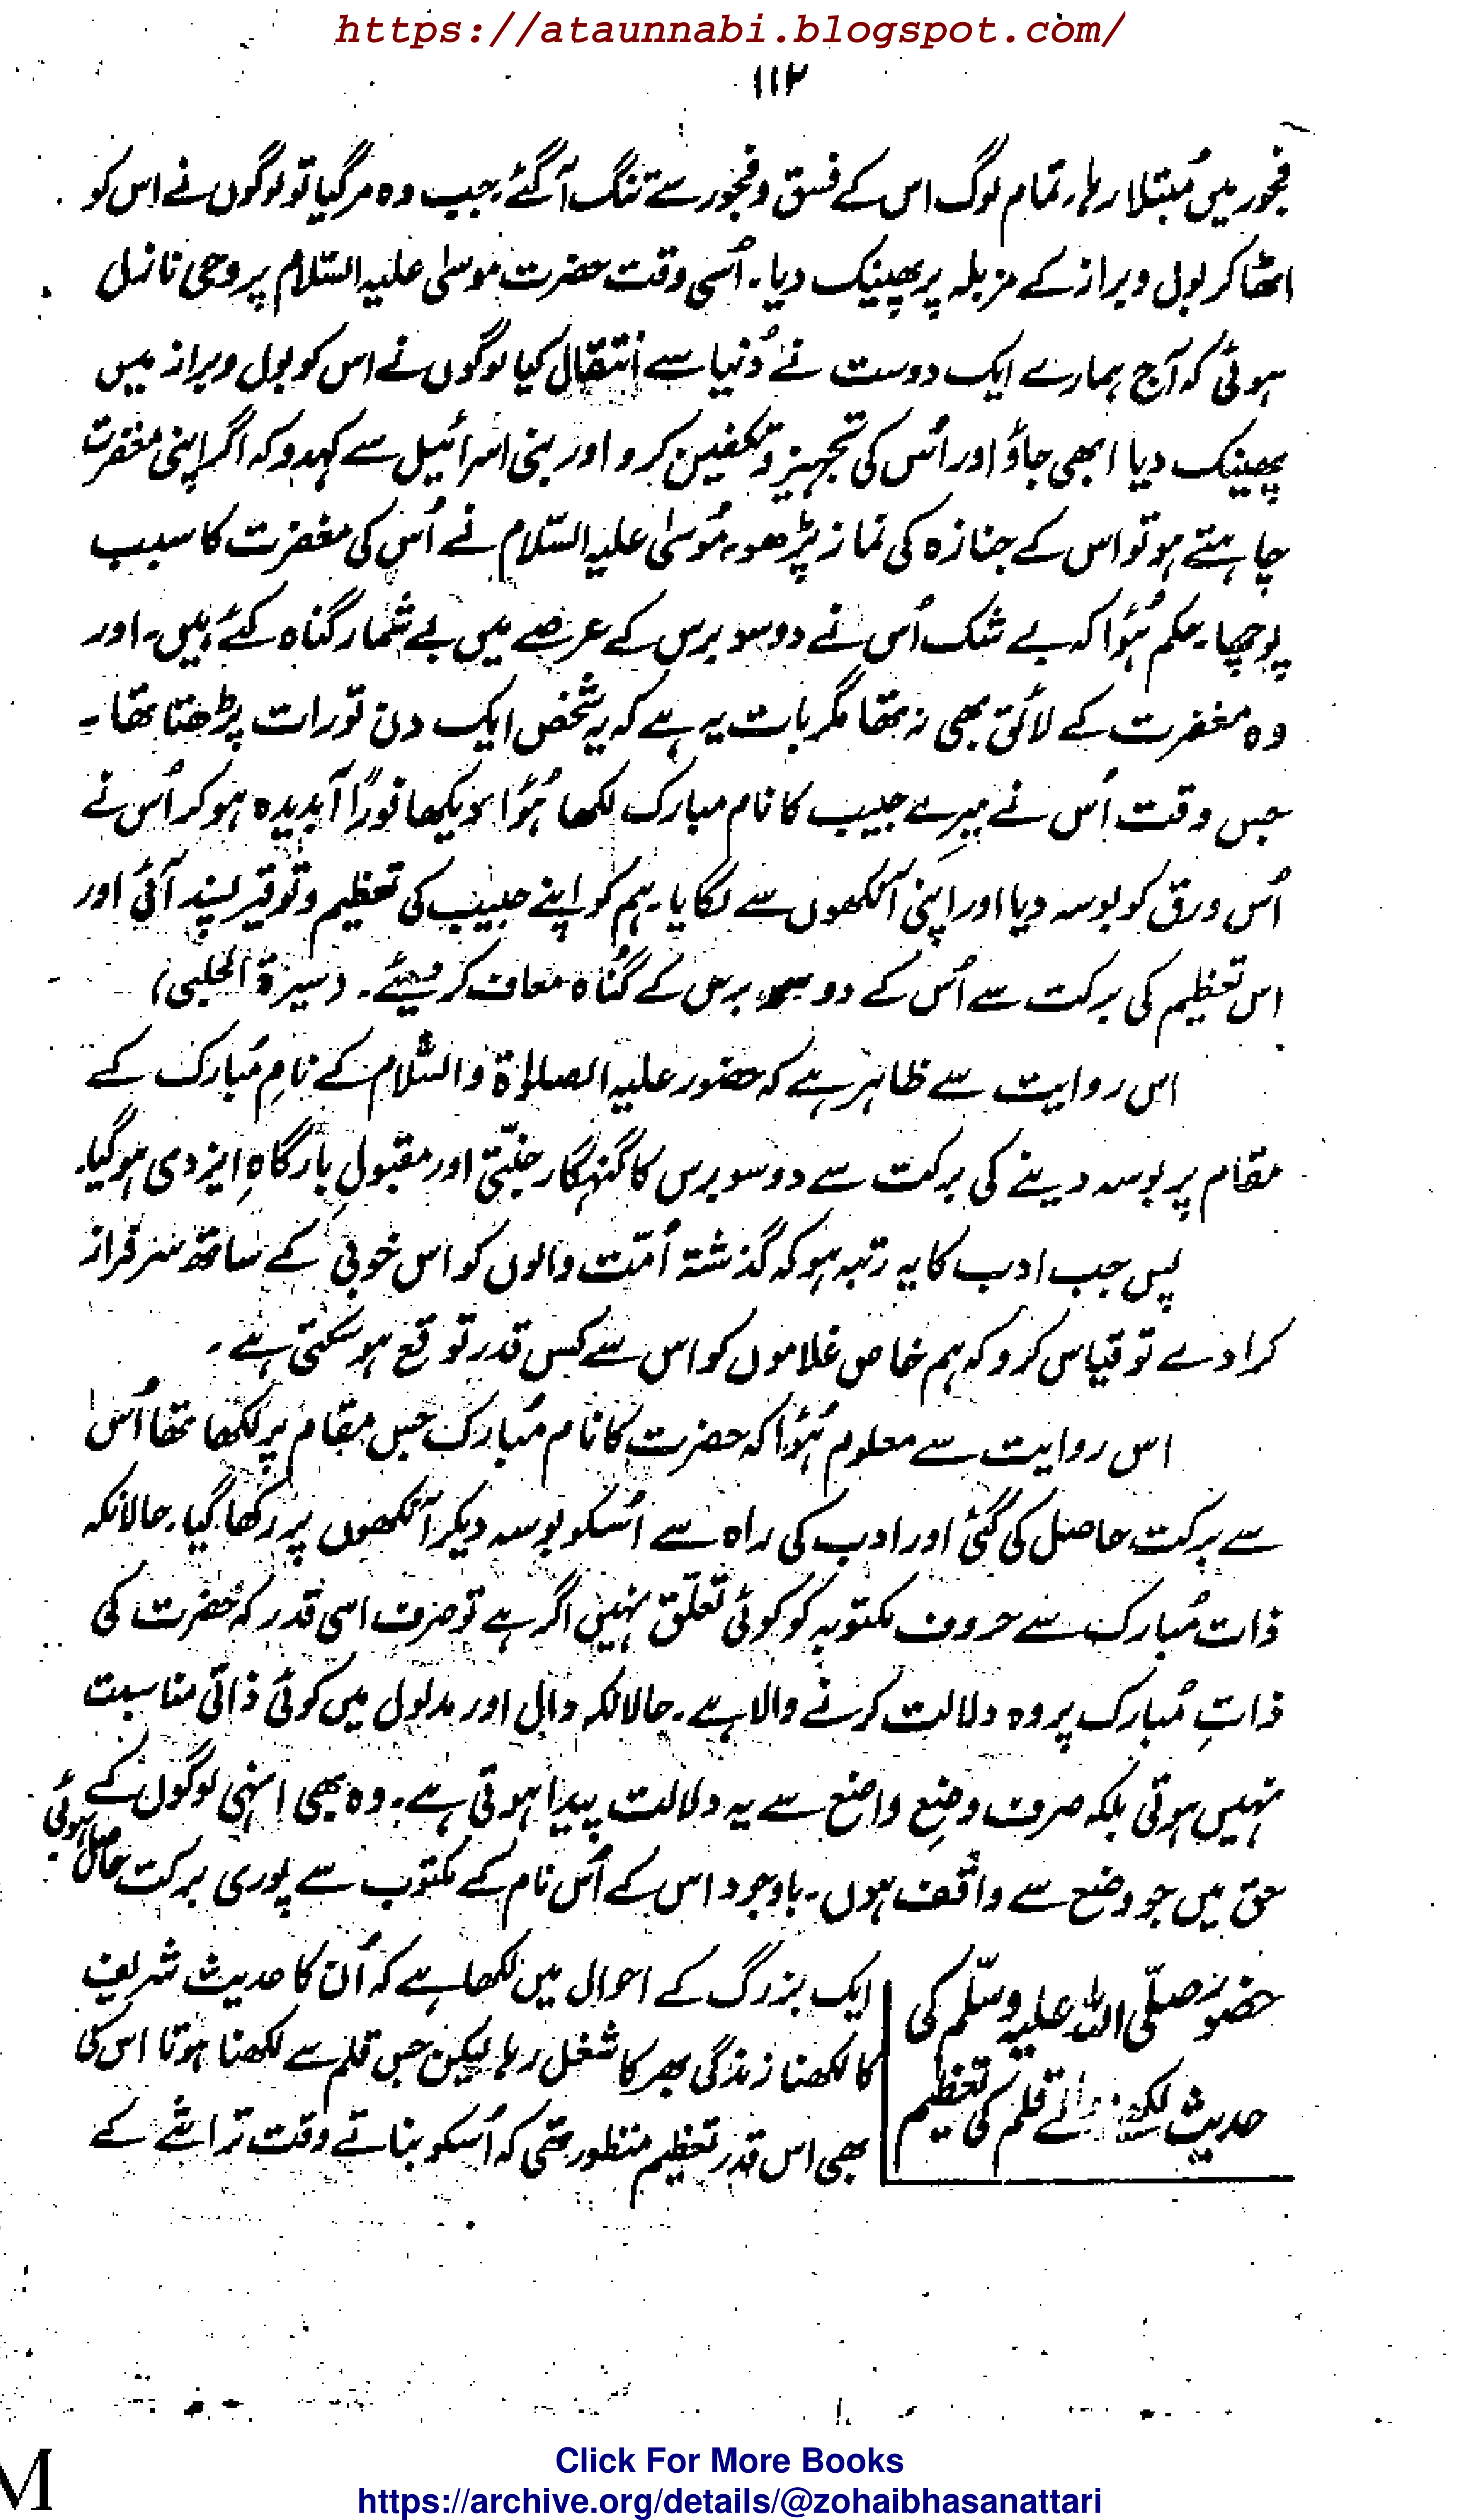 https://ataunnabi.blogspot.com/
۱۱۲
فجور میں مُبتلا رہا، تمام لوگ اس کے فسق و فجور سے تنگ آ گئے، جب وہ مر گیا تو لوگوں نے اس کو
اٹھا کر بول وبراز کے مزبلہ پر پھینک دیا۔ اُسی وقت حضرت موسیٰ علیہ السّلام پر وحی نازل
ہوئی کہ آج ہمارے ایک دوست نے دُنیا سے انتقال کیا لوگوں نے اس کو بول وبراز میں
پھینک دیا ابھی جاؤ اور اُس کی تجہیز و تکفین کرو اور بنی اسرائیل سے کہدو کہ اگر اپنی مغفرت
چاہتے ہو تو اس کے جنازہ کی نماز پڑھو، مُوسیٰ علیہ السّلام نے اُس کی مغفرت کا سبب
پوچھا۔ حکم ہُوا کہ بے شک اُس نے دو سو برس کے عرصے میں بے شمار گناہ کئے ہیں۔ اور
وہ مغفرت کے لائق بھی نہ تھا مگر بات یہ ہے کہ یہ شخص ایک دن تورات پڑھتا تھا۔
جس وقت اُس نے میرے حبیب کا نام مبارک لکھا ہُوا دیکھا فورًا آبدیدہ ہو کر اُس نے
اُس ورق کو بوسہ دیا اور اپنی آنکھوں سے لگایا۔ ہم کو اپنے حبیب کی تعظیم و توقیر پسند آئی اور
اس تعظیم کی برکت سے اُس کے دو سو برس کے گُناہ معاف کر دیئے۔ (سیرۃ الحلبی)
اس روایت سے ظاہر ہے کہ حضور علیہ الصلوٰۃ والسّلام کے نامِ مُبارک کے
مقام پر بوسہ دینے کی برکت سے دو سو برس کا گنہگار جنّتی اور مقبولِ بارگاہِ ایزدی ہو گیا۔
پس جب ادب کا یہ رتبہ ہو کہ گذشتہ اُمّت والوں کو اس خوبی کے ساتھ سرفراز
کرا دے تو قیاس کرو کہ ہم خاص غلاموں کو اس سے کس قدر توقع ہو سکتی ہے۔
اس روایت سے معلوم ہُوا کہ حضرت کا نام مُبارک جس مقام پر لکھا تھا اُس
سے برکت حاصل کی گئی اور ادب کی راہ سے اُسکو بوسہ دیکر آنکھوں پر رکھا گیا۔ حالانکہ
ذات مُبارک سے حروف مکتوبہ کو کوئی تعلّق نہیں اگر ہے تو صرف اسی قدر کہ حضرت کی
ذاتِ مُبارک پر وہ دلالت کرنے والا ہے۔ حالانکہ دال اور مدلول میں کوئی ذاتی مناسبت
نہیں ہوتی بلکہ صرف وضِع واضع سے یہ دلالت پیدا ہوتی ہے۔ وہ بھی انہی لوگوں کے
حق میں جو وضع سے واقف ہوں۔ باوجود اس کے اُس نام کے مکتوب سے پوری برکت حاصل ہوئی
حضور صلّی اللہ علیہ وسلّم کی
حدیث لکھنے والے قلم کی تعظیم
ایک بزرگ کے احوال میں لکھا ہے کہ اُن کا حدیث شریف
کا لکھنا زندگی بھر کا شغل رہا لیکن جس قلم سے لکھنا ہوتا اس کی
بھی اس قدر تعظیم منظور تھی کہ اُسکو بناتے وقت تراشے کے
Click For More Books
https://archive.org/details/@zohaibhasanattari
M